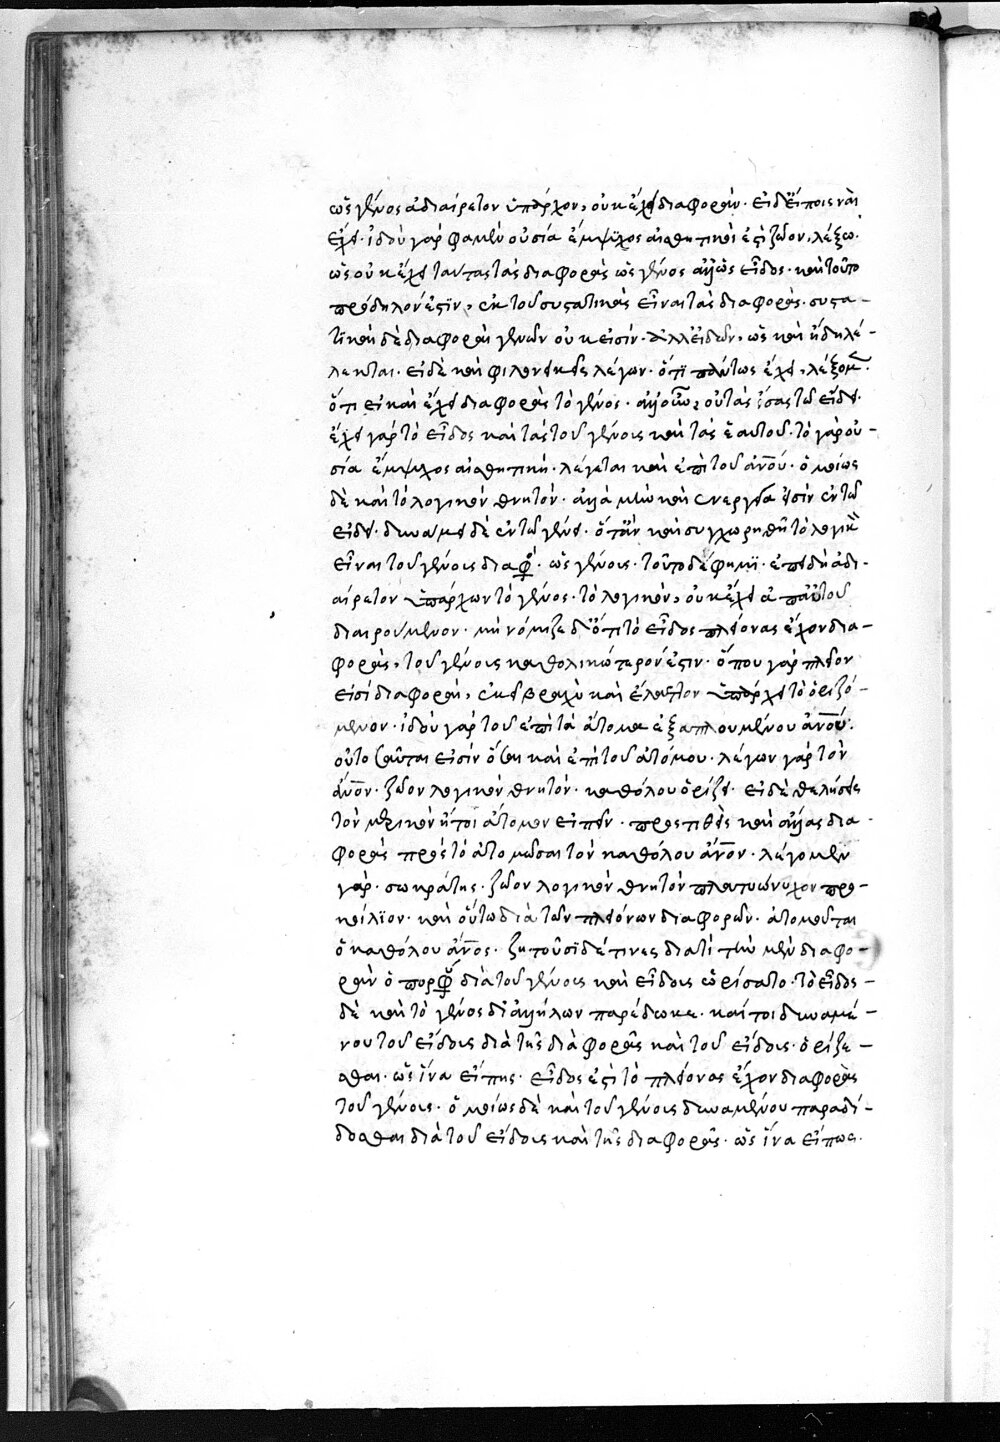 ὡς γένος ἀδιαίρετον ὑπάρχον, οὐκ ἔχει διαφοράν· εἰ δὲ εἴποις ναὶ
ἔχει· ἰδοὺ γάρ φαμεν οὐσία ἔμψυχος αἰσθητικὴ ἐστὶ ζῶον, λέξω·
ὡς οὐκ ἔχει ταύτας τὰς διαφορὰς ὡς γένος ἀλλ' ὡς εἶδος· καὶ τοῦτο
πρόδηλον ἐστὶν, ἐκ τοῦ συστατικὰς εἶναι τὰς διαφοράς· συστα-
τικαὶ δὲ διαφοραὶ γενῶν οὐκ εἰσίν· ἀλλ' εἰδῶν, ὡς καὶ ἤδη λέ-
λεκται· εἰ δὲ καὶ φιλονεικεῖς λέγων· ὅτι πάντως ἔχει, λέξομεν·
ὅτι εἰ καὶ ἔχει διαφορὰς τὸ γένος· ἀλλ' οὖν οὐ τὰς ἴσας τῶ εἴδει·
ἔχει γὰρ τὸ εἶδος καὶ τὰς τοῦ γένους καὶ τὰς ἑαυτοῦ· τὸ γὰρ οὐ-
σία ἔμψυχος αἰσθητική· λέγεται καὶ ἐπὶ τοῦ ἀνου· ὁμοίως
δὲ καὶ τὸ λογικὸν θνητόν· ἀλλὰ μὴν καὶ ἐνεργεία εἰσὶν ἐν τῶ
εἴδει· δυνάμει δὲ ἐν τῶ γένει· ὅταν καὶ συγχωρηθῆ τὸ λογικὸν
εἶναι τοῦ γένους διαφορά· ὡς γένους· τοῦτο δέ φημι· ἐπειδὴ ἀδι-
αίρετον ὑπάρχων τὸ γένος· τὸ λογικὸν, οὐκ ἔχει ἀπ' αὐτοῦ
διαιρούμενον· μὴ νόμιζε διότι τὸ εἶδος πλείονας ἔχον δια-
φορὰς, τοῦ γένους καθολικώτερον ἐστιν· ὅπου γὰρ πλείον
εἰσὶ διαφοραὶ, ἐκεῖ βραχὺ καὶ ἔλαττον ὑπάρχει τὸ ὁριζό-
μενον· ἰδοὺ γὰρ τοῦ ἐπὶ τὰ ἄτομα ἐξαπλουμένου ἀνου·
αὗται εἰσὶν ὅσαι καὶ ἐπὶ τοῦ ἀτόμου· λέγων γὰρ τὸν
ἄνον· ζῶον λογικὸν θνητόν· καθόλου ὁρίζει· εἰ δὲ θελήσεις
τὸν μερικὸν ἤτοι ἄτομον εἰπεῖν· προστιθεὶς καὶ ἄλλας δια-
φορὰς πρὸς τὸ ἀτομῶσαι τὸν καθόλου ἄνον· λέγομεν
γάρ· σωκράτης· ζῶον λογικὸν θνητὸν πλατυώνυχον προ-
κοίλιον· καὶ οὕτω διὰ τῶν πλειόνων διαφορῶν· ἀτομοῦται
ὁ καθόλου ἄνος· ζητοῦσι δέ τινες διατὶ τὴν μὲν διαφο-
ρὰν ὁ πορφύ διὰ τοῦ γένους καὶ εἴδους ὡρίσατο· τὸ εἶδος-
δὲ καὶ τὸ γένος δι' ἀλλήλων παρέδωκε· καί τοι δυναμέ-
νου τοῦ εἴδους διὰ τῆς διαφορᾶς καὶ τοῦ εἴδους· ὁρίζε-
σθαι· ὡς ἵνα εἴπης· εἶδος ἐστὶ τὸ πλείονας ἔχον διαφορὰς
τοῦ γένους· ὁμοίως δὲ καὶ τοῦ γένους δυναμένου παραδί-
δοσθαι διὰ τοῦ εἴδους καὶ τῆς διαφορᾶς· ὡς ἵνα εἴπως·